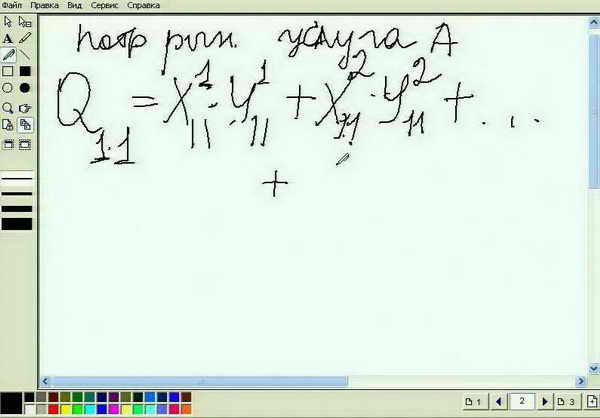 Файл Правка Вид Сервис Справка
потр рын. услуга А
Q₁.₁ = X¹₁₁ · Y¹₁₁ + X²₁₁ · Y²₁₁ + . . .
+
A
1 2 3